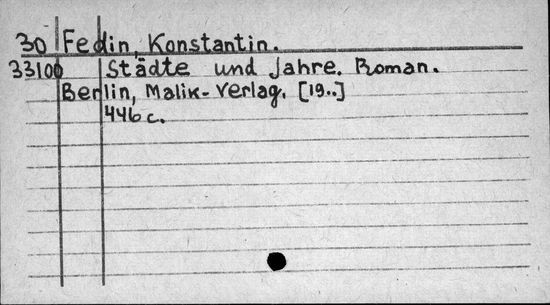 30 Fedin, Konstantin.
33100 Städte und Jahre. Roman.
Berlin, Malik-Verlag. [19..]
446 c.